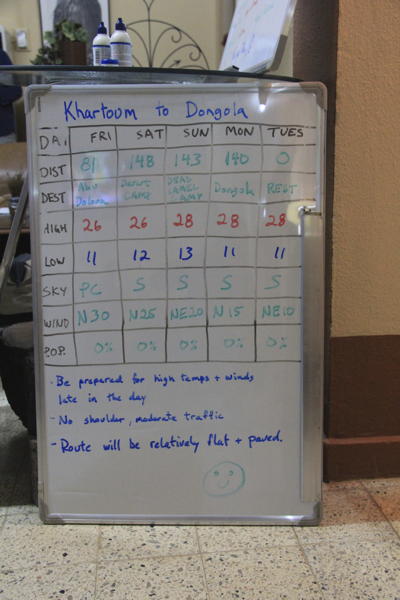 Khartoum to Dongola
DAY FRI SAT SUN MON TUES
DIST 81 148 143 140 0
DEST Abu Dolooa Desert CAMP DEAD CAMEL CAMP Dongola REST
HIGH 26 26 28 28 28
LOW 11 12 13 11 11
SKY PC S S S S
WIND N30 N25 NE20 N15 NE10
P.O.P. 0% 0% 0% 0% 0%
- Be prepared for high temps + winds
late in the day
- No shoulder, moderate traffic
- Route will be relatively flat + paved.